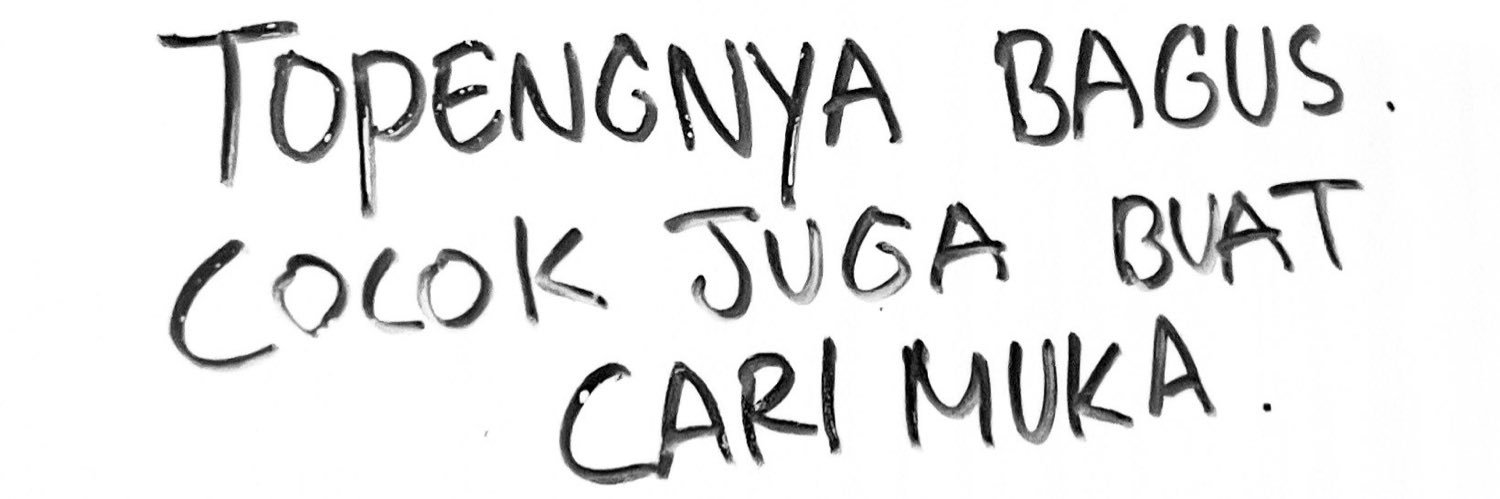 TOPENGNYA BAGUS.
COCOK JUGA BUAT
CARI MUKA.